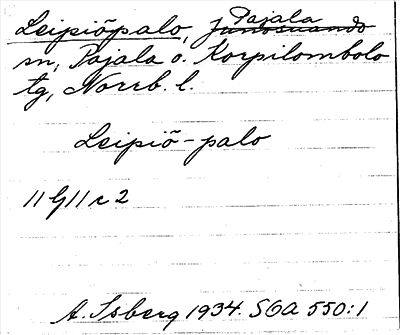 Leipiöpalo, Junosuando Pajala
sn, Pajala o. Korpilombolo
tg, Norrb. l.
Leipiö-palo
11 G 11 c 2
A. Isberg 1934. SOA 550:1